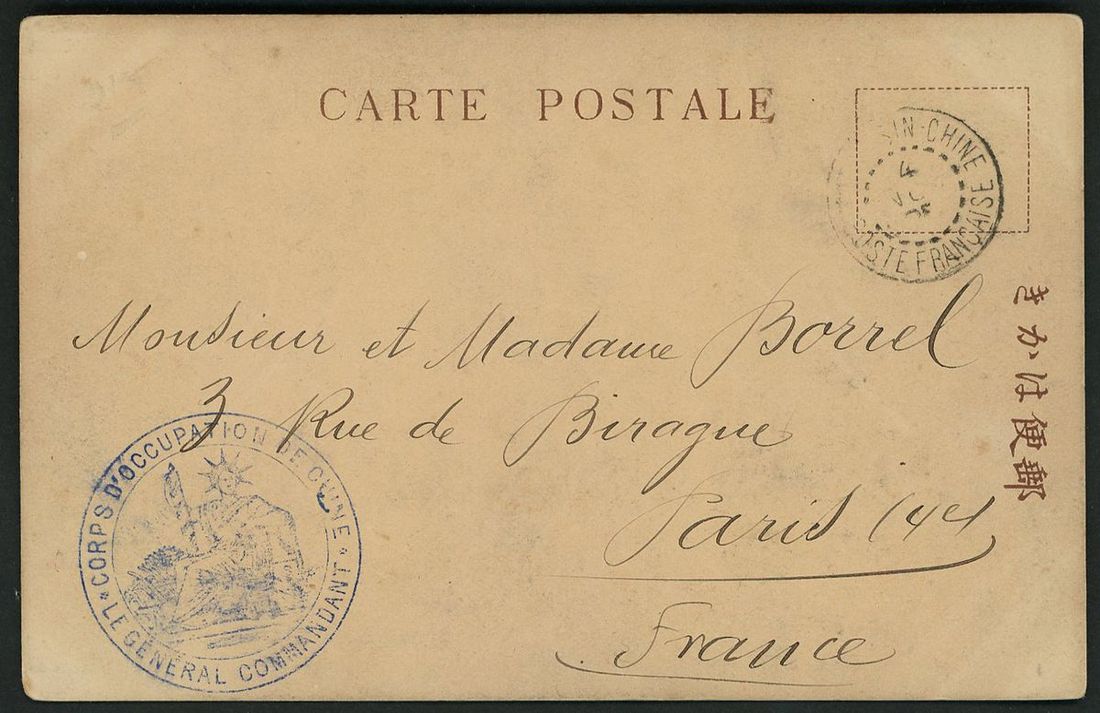 CARTE POSTALE
SIN-CHINE
POSTE FRANÇAISE
きかは便郵
Monsieur et Madame Borrel
3 Rue de Birague
Paris
France
CORPS D'OCCUPATION DE CHINE
LE GENERAL COMMANDANT